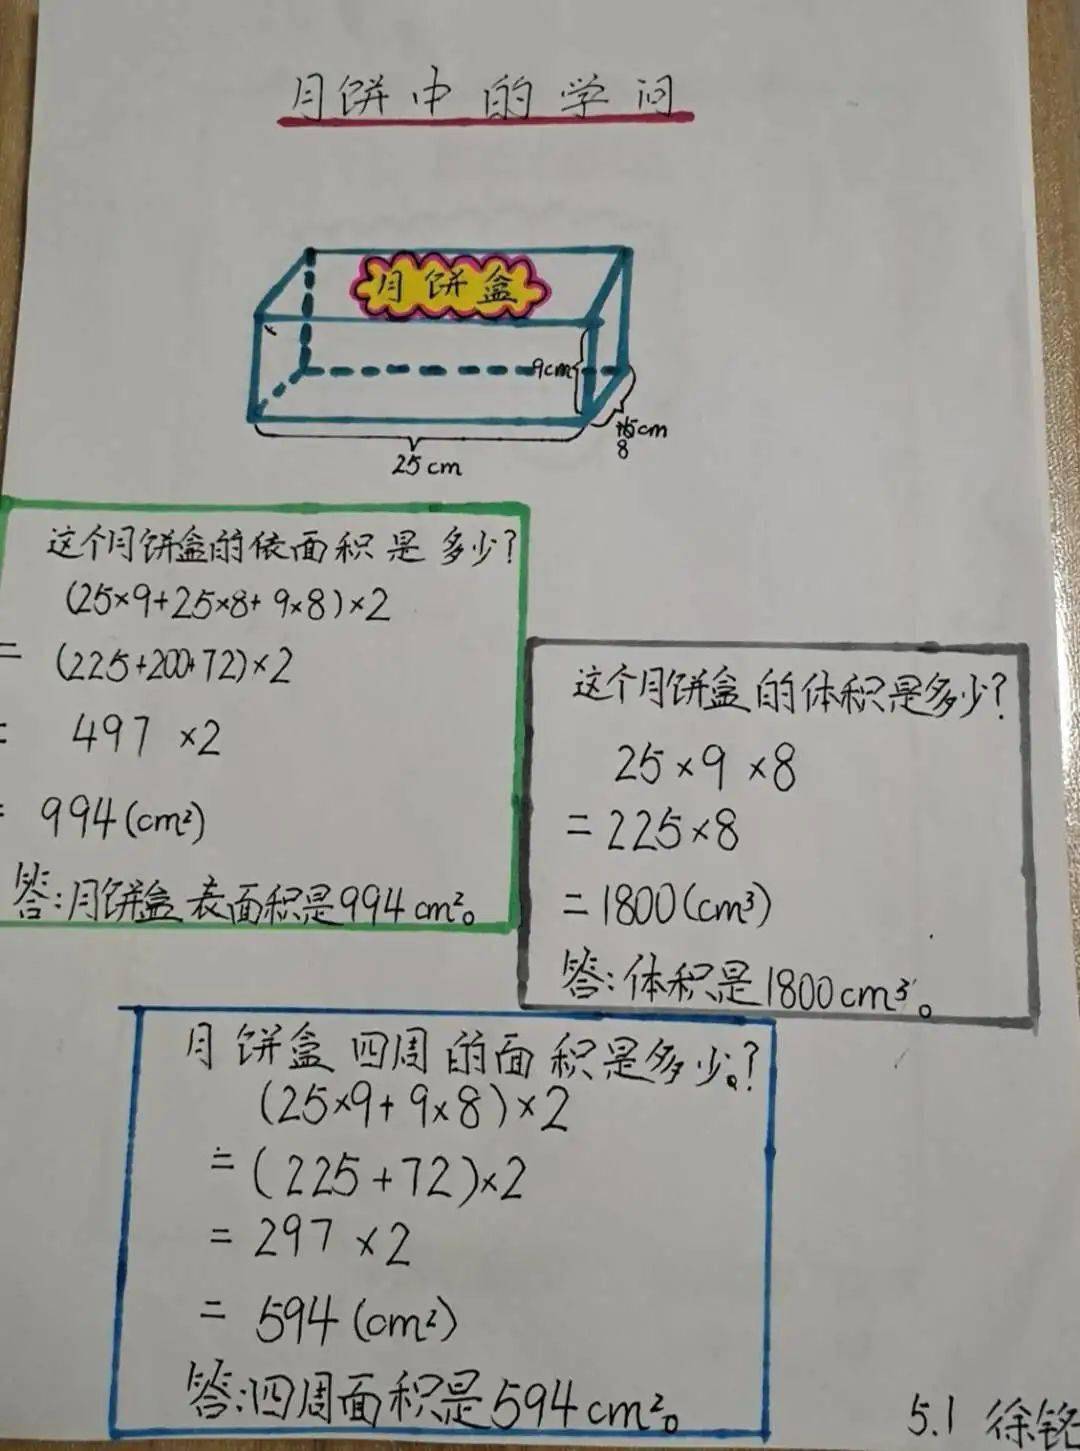 月饼中的学问
月饼盒
9cm
15cm
8
25cm
这个月饼盒的依面积是多少?
(25×9+25×8+9×8)×2
= (225+200+72)×2
= 497×2
= 994(cm²)
答:月饼盒表面积是994cm²。
这个月饼盒的体积是多少?
25×9×8
=225×8
=1800(cm³)
答:体积是1800cm³。
月饼盒四周的面积是多少?
(25×9+9×8)×2
=(225+72)×2
=297×2
=594(cm²)
答:四周面积是594cm²。
5.1 徐铭